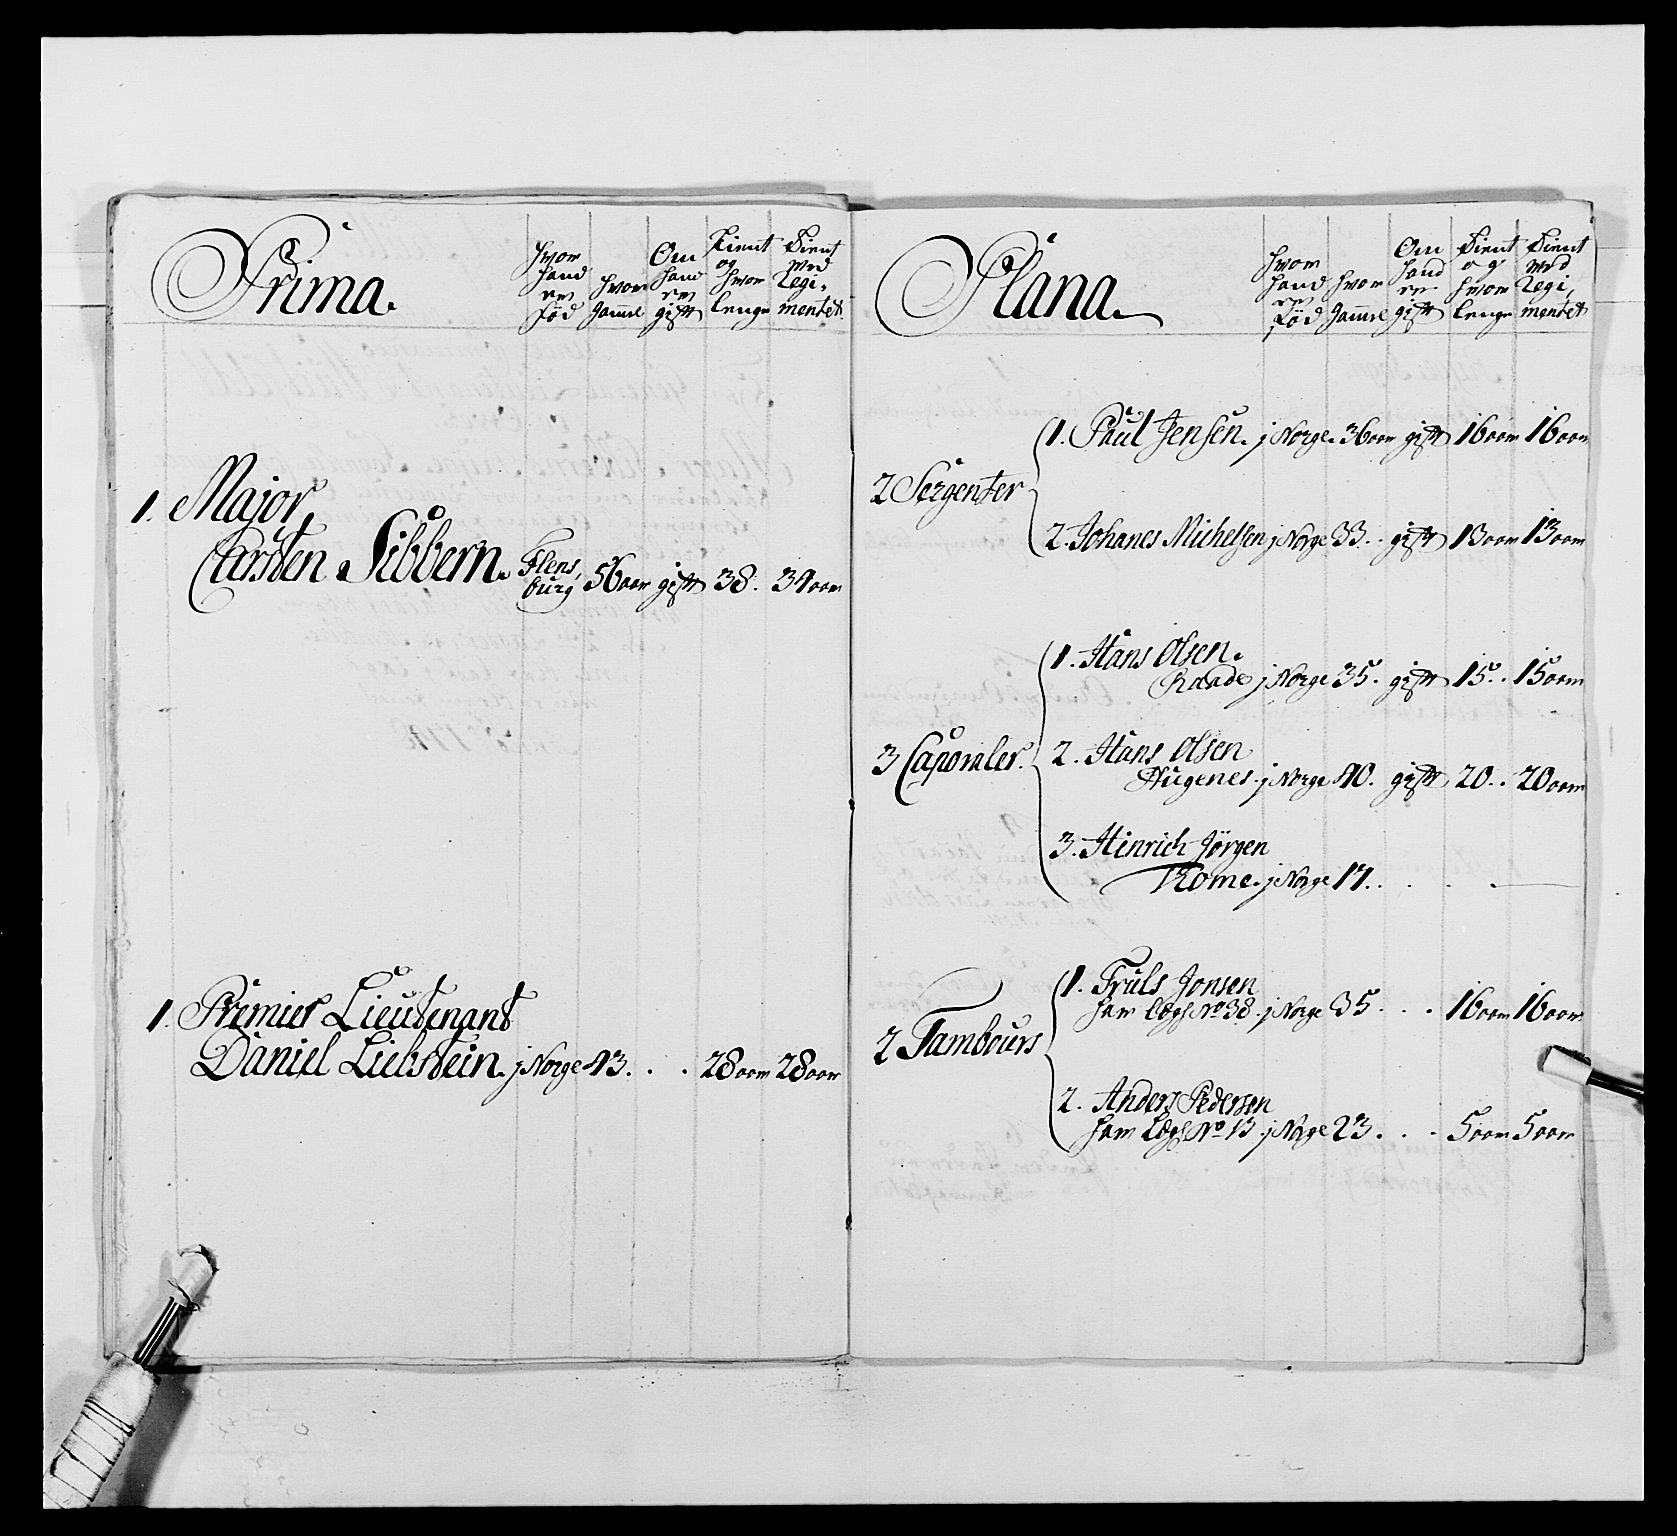 Prima.
Hvor hand er Fød
Hvor Gamel
Om hand er gift
Tient og hvor lenge
Tient ved Regimentet
1. Major,
Carsten Sibbern. Flensburg 56 aar gift 38. 34 aar
1. Premier Lieutenant
Daniel Liebstein. j Norge 43. . . 28 aar 28 aar
Plana.
Hvor hand er Fød
Hvor Gamel
Om hand er gift
Tient og hvor lenge
Tient ved Regimentet
2 Sergenter
1. Paul Jensen. j Norge. 36 aar gift 16 aar 16 aar
2. Johanes Michelsen j Norge 33. . gift 13 aar 13 aar
3 Caporaler.
1. Hans Olsen.
Raade j Norge 35. gift 15. . 15 aar
2. Hans Olsen
Hugenes. j Norge 40. gift 20. . 20 aar
3. Hinrich Jörgen
Kome. j Norge 17. . . .
2 Tambours
1. Truls Jonsen
ham Lægs No 38. j Norge 35 . . . 16 aar 16 aar
2. Anders Pedersen
ham Lægs No 13. j Norge 23. . . 5 aar 5 aar